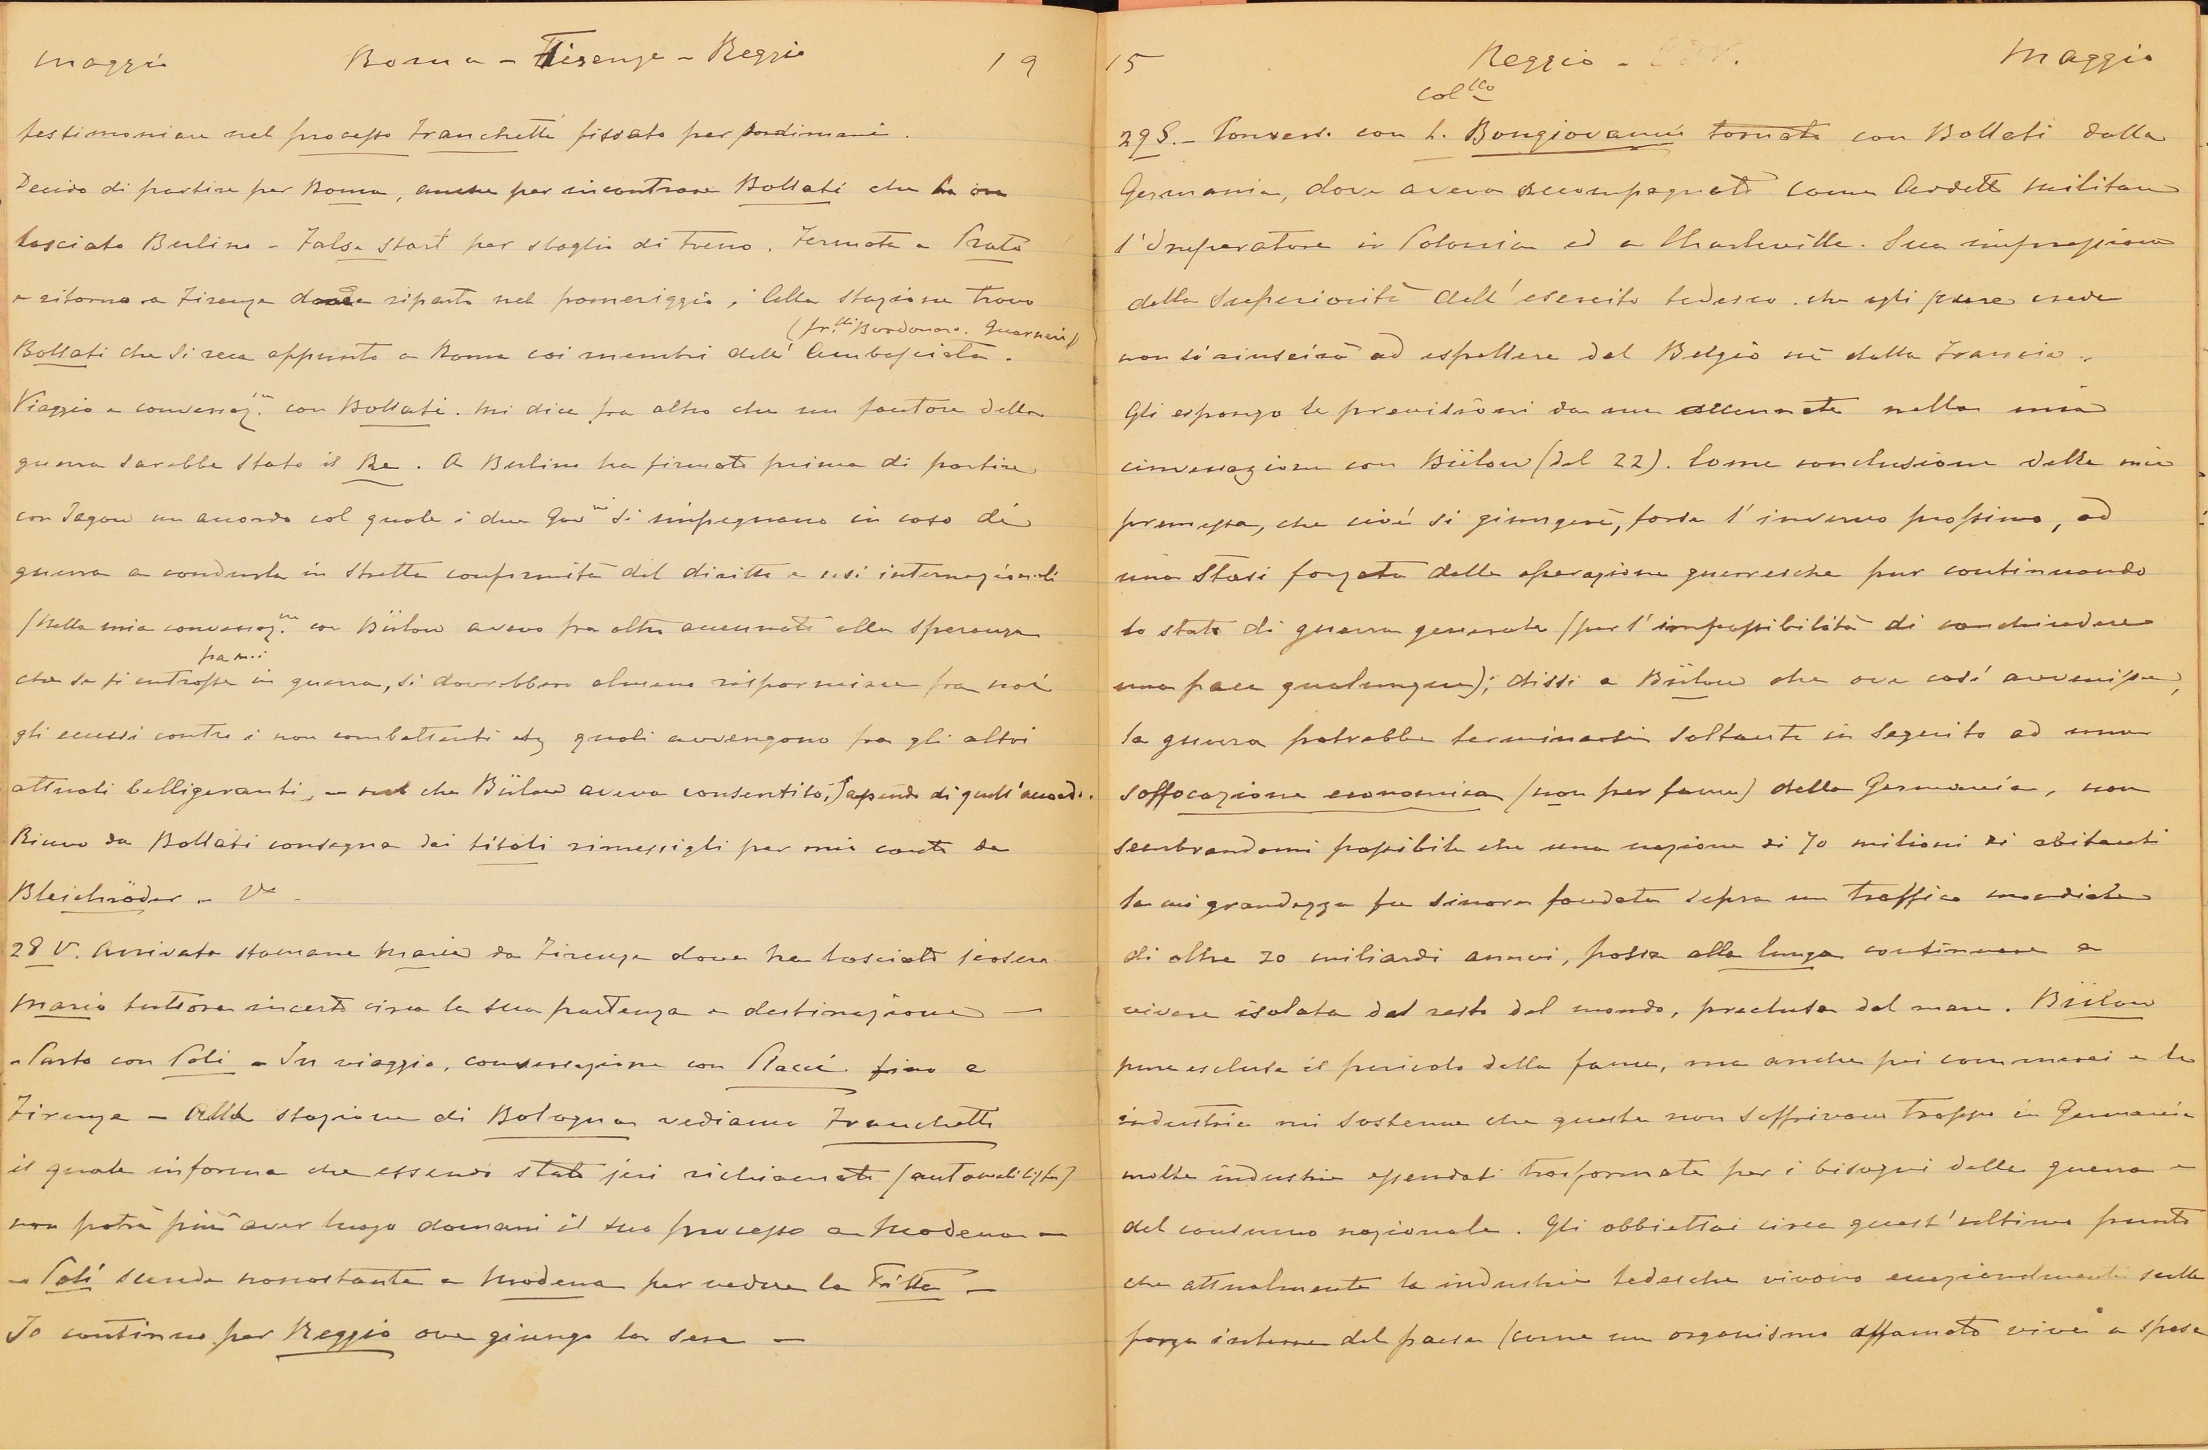 Maggio Roma - Firenze - Reggio 19
testimoniare nel processo Franchetti fissato per
Decido di partire per Roma, anche per incontrare Bollati che ha ora
lasciato Berlino - False start per sbaglio di treno. Fermata a Prato
e ritorno a Firenze donde riparto nel pomeriggio; Alla stazione trovo
(fr.lli Bordonaro. Guarneri)
Bollati che si reca appunto a Roma coi membri dell'Ambasciata.
Viaggio e conversaz.ne con Bollati. Mi dice fra altro che un fautore della
guerra sarebbe stato il Re. A Berlino ha firmato prima di partire
con Jagow un accordo col quale i due Gov.ni si impegnano in caso di
guerra a condurla in stretta conformità del diritto e usi internazionali
(Nella mia conversaz.ne con Bülow avevo fra altro accennato alla speranza
fra noi
che se si entrasse in guerra, si dovrebbero almeno risparmiare fra noi
gli eccessi contro i non combattenti etz quali avvengono fra gli altri
attuali belligeranti, e che Bülow aveva consentito;) di quell'accordo.
Ricevo da Bollati consegna dei titoli rimessigli per mio conto da
Bleichröder -
28 V. Arrivata stamane Maria da Firenze dove ha lasciato jersera
Mario tuttora incerto circa la sua partenza e destinazione —
- Parto con Poli - In viaggio, conversazione con Placci fino a
Firenze - Alla stazione di Bologna vediamo Franchetti
il quale informa che essendo stato jeri richiamato (automobilista)
non potrà più aver luogo domani il suo processo a Modena —
- Poli scende nonostante a Modena per vedere la Titta —
Io continuo per Reggio ove giungo la sera —
15 Reggio - Maggio
col.llo
29 S. - Conversi con L. Bongiovanni tornato con Bollati dalla
Germania, dove aveva accompagnato come Addetto militare
l'Imperatore in Polonia ed a Charleville. Sua impressione
della superiorità dell'esercito tedesco che egli pure crede
non si riuscirà ad espellere dal Belgio nè dalla Francia.
Gli espongo le previsioni da me accennate nella mia
conversazione con Bülow (del 22). Come conclusione della mia
premessa, che cioè si giungerà, forse l'inverno prossimo, ad
una stasi forzata delle operazione guerresche pur continuando
lo stato di guerra generale (per l'impossibilità di conchiudere
una pace qualunque); dissi a Bülow che ove così avvenisse,
la guerra potrebbe terminarsi soltanto in seguito ad una
soffocazione economica (non per fame) della Germania, non
sembrandomi possibile che una nazione di 70 milioni di abitanti
la cui grandezza fu sinora fondata sopra un traffico mondiale
di oltre 20 miliardi annui, possa alla lunga continuare a
vivere isolata dal resto del mondo, preclusa dal mare. Bülow
pure escluse il pericolo della fame, ma anche pei commerci e le
industrie mi sostenne che queste non soffrivano troppo in Germania
molte industrie essendosi trasformate per i bisogni della guerra e
del consumo nazionale. Gli obbiettai circa quest'ultimo punto
che attualmente le industrie tedesche vivono eccezionalmente sulle
forze interne del paese (come un organismo affamato vive a spese